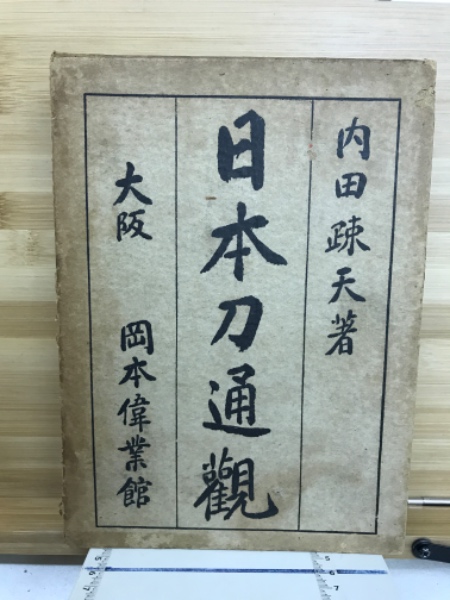 内田疎天著
日本刀通觀
大阪 岡本偉業館
5
6
7